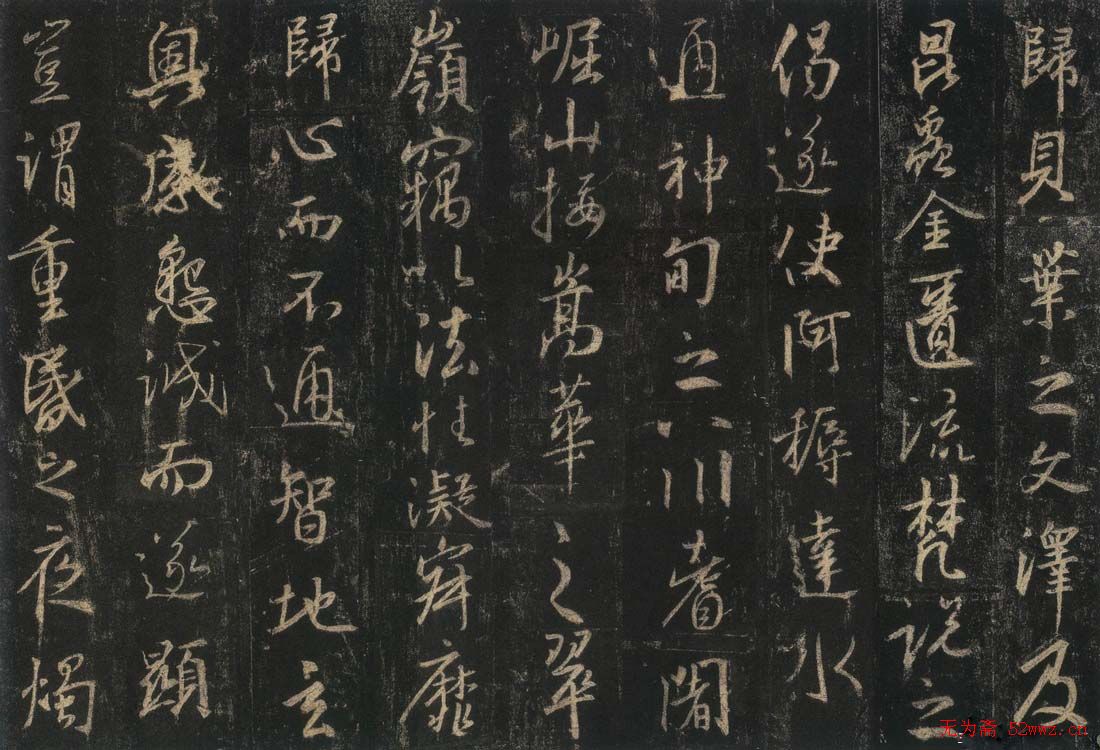 歸貝葉之文澤及
昆蟲金匱流梵說之
偈遂使阿耨達水
通神甸之八川耆闍
崛山接嵩華之翠
嶺竊以法性凝寂靡
歸心而不通智地玄
奧感懇誠而遂顯
豈謂重昏之夜燭
无为斋 52wwz.cn